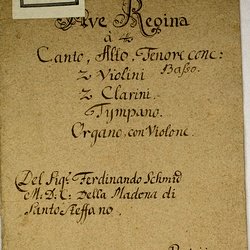 Ave Regina
à 4
Canto, Alto, Tenore conc:
Basso.
2 Violini
2 Clarini.
Tympano.
Organo, con Violone.
Del Sigr Ferdinando Schmid
M: D: C: della Madona di
Santo Steffano.